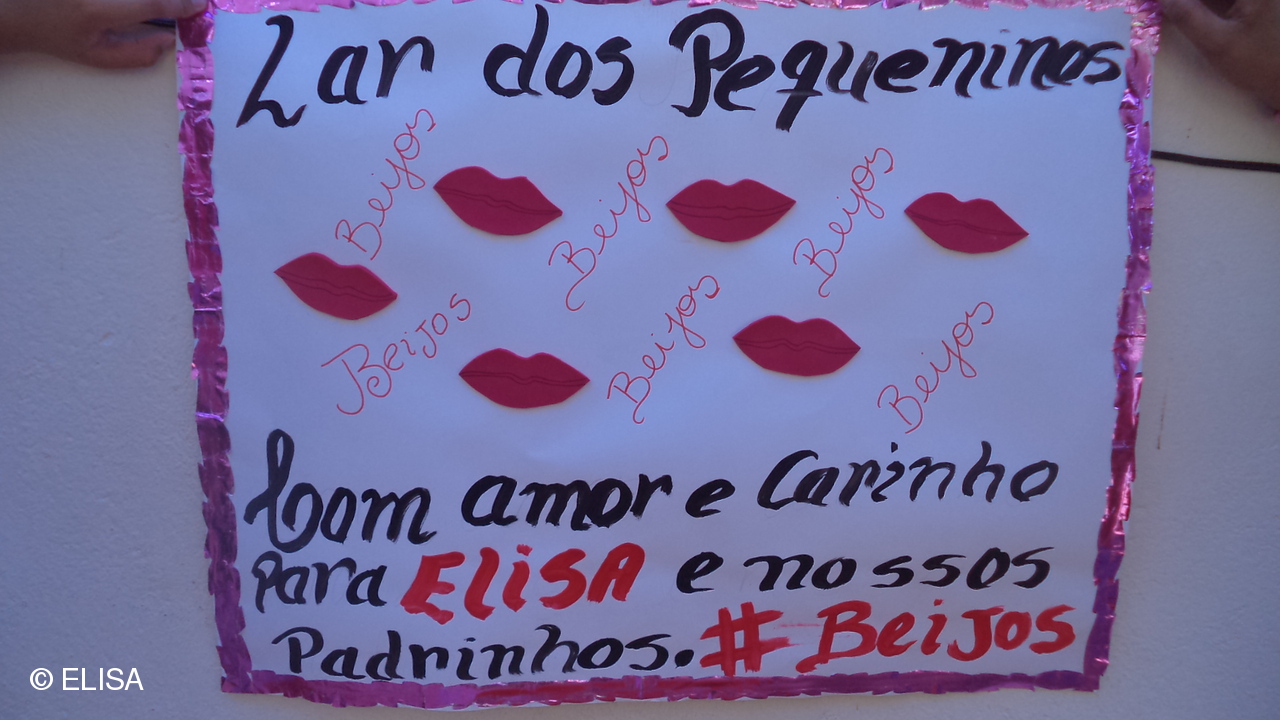 Lar dos Pequeninos
Beijos
Beijos
Beijos
Beijos
Beijos
Beijos
Com amor e Carinho
Para ELiSA e nossos
Padrinhos. # BeiJos
© ELISA